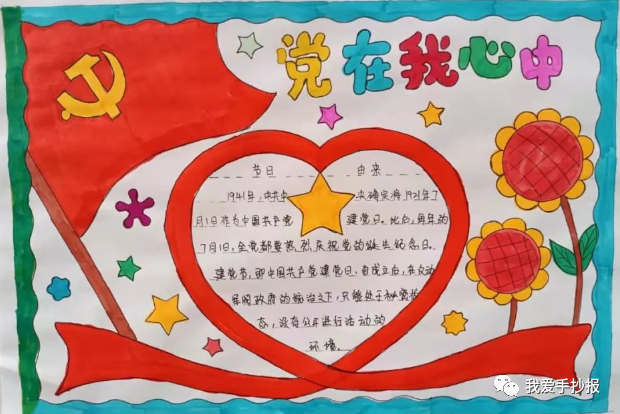 党在我心中
节日 由来
1941年,中共中央确定将1921年7
月1日作为中国共产党建党日。此后,每年的
7月1日,全党都要热烈庆祝党的诞生纪念日。
建党节,即中国共产党建党日,自成立后,在
军阀政府的统治之下,只能处于秘密状
态,没有公开进行活动的
环境。
我爱手抄报